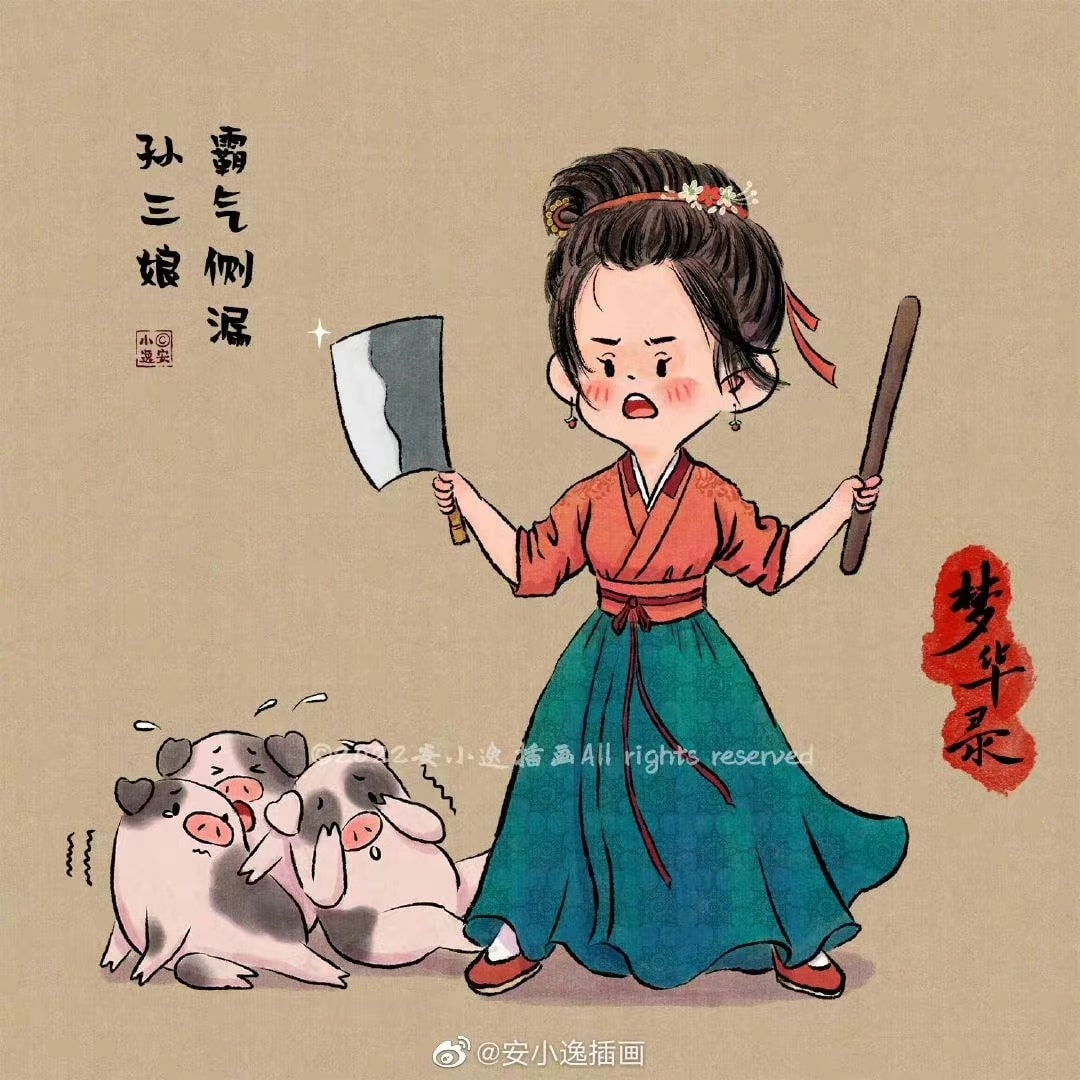 霸气侧漏
孙三娘
©安小逸
梦华录
©2022安小逸插画All rights reserved
@安小逸插画